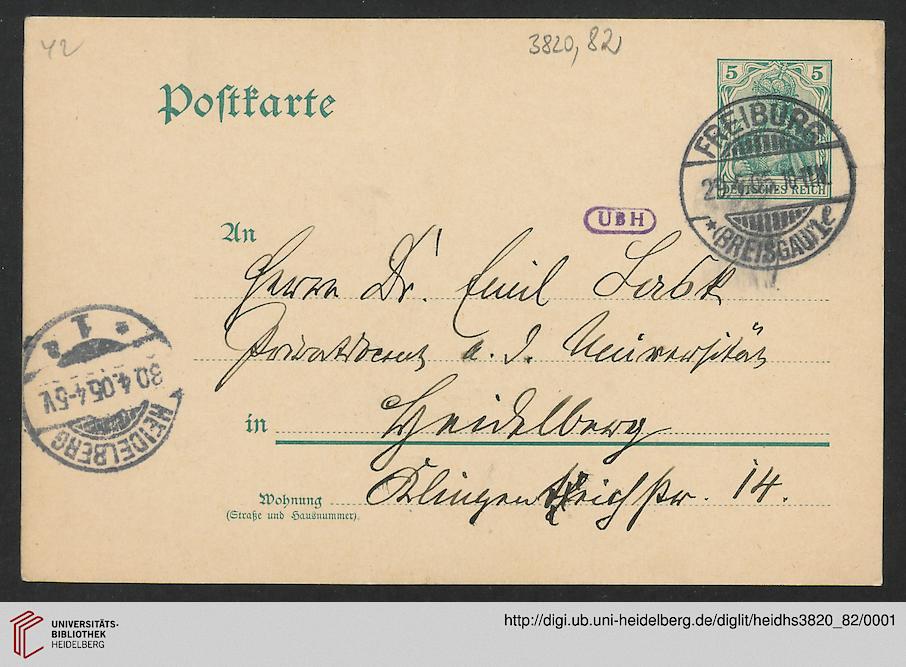 42
3820, 82
Postkarte
5 5
DEUTSCHES REICH
FREIBURG
(BREISGAU) 1e
UBH
An
Herrn Dr. Emil Lask
Privatdocent a. d. Universität
in Heidelberg
Wohnung Klingenteichstr. 14.
(Straße und Hausnummer).
* 1 a
30.4.05.4-5V.
HEIDELBERG
UNIVERSITÄTS-
BIBLIOTHEK
HEIDELBERG
http://digi.ub.uni-heidelberg.de/diglit/heidhs3820_82/0001